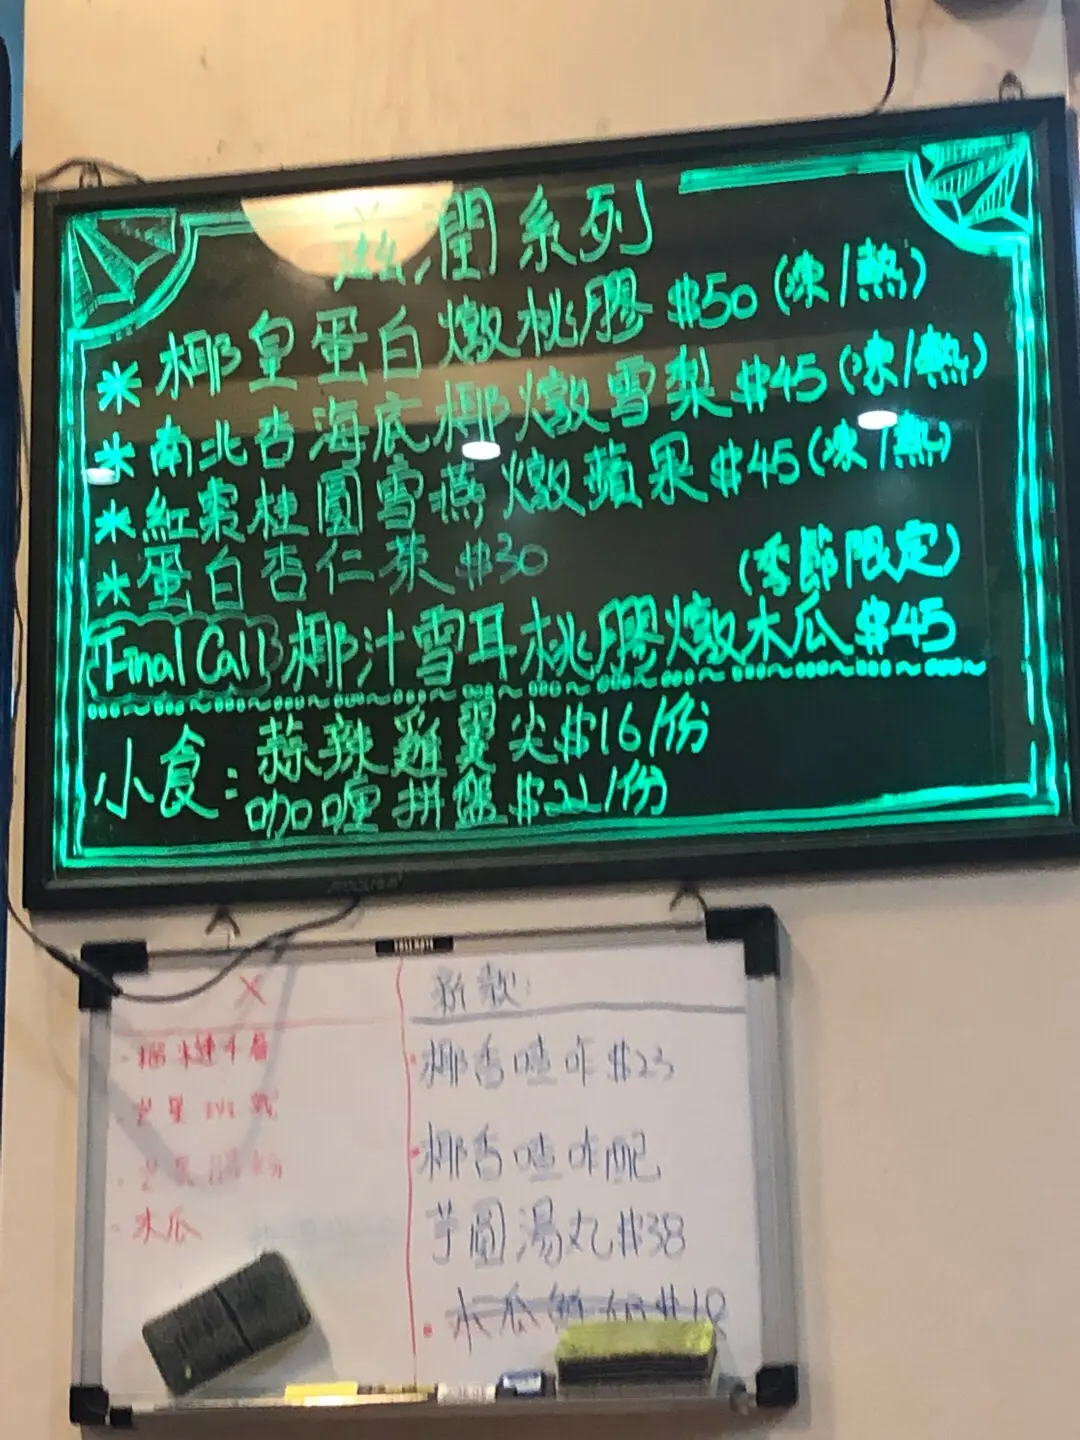 滋潤系列
* 椰皇蛋白燉桃膠 $50 (凍/熱)
* 南北杏海底椰燉雪梨 $45 (凍/熱)
* 紅棗桂圓雪燕燉蘋果 $45 (凍/熱)
* 蛋白杏仁茶 $30
(季節限定)
(Final Call) 椰汁雪耳桃膠燉木瓜 $45
小食：蒜辣雞翼尖 $16/份
咖喱拼盤 $22/份
X
新款：
榴槤千層
· 椰香喳咋 $23
· 椰香喳咋配
芋圓湯丸 $38
· 木瓜
· 木瓜